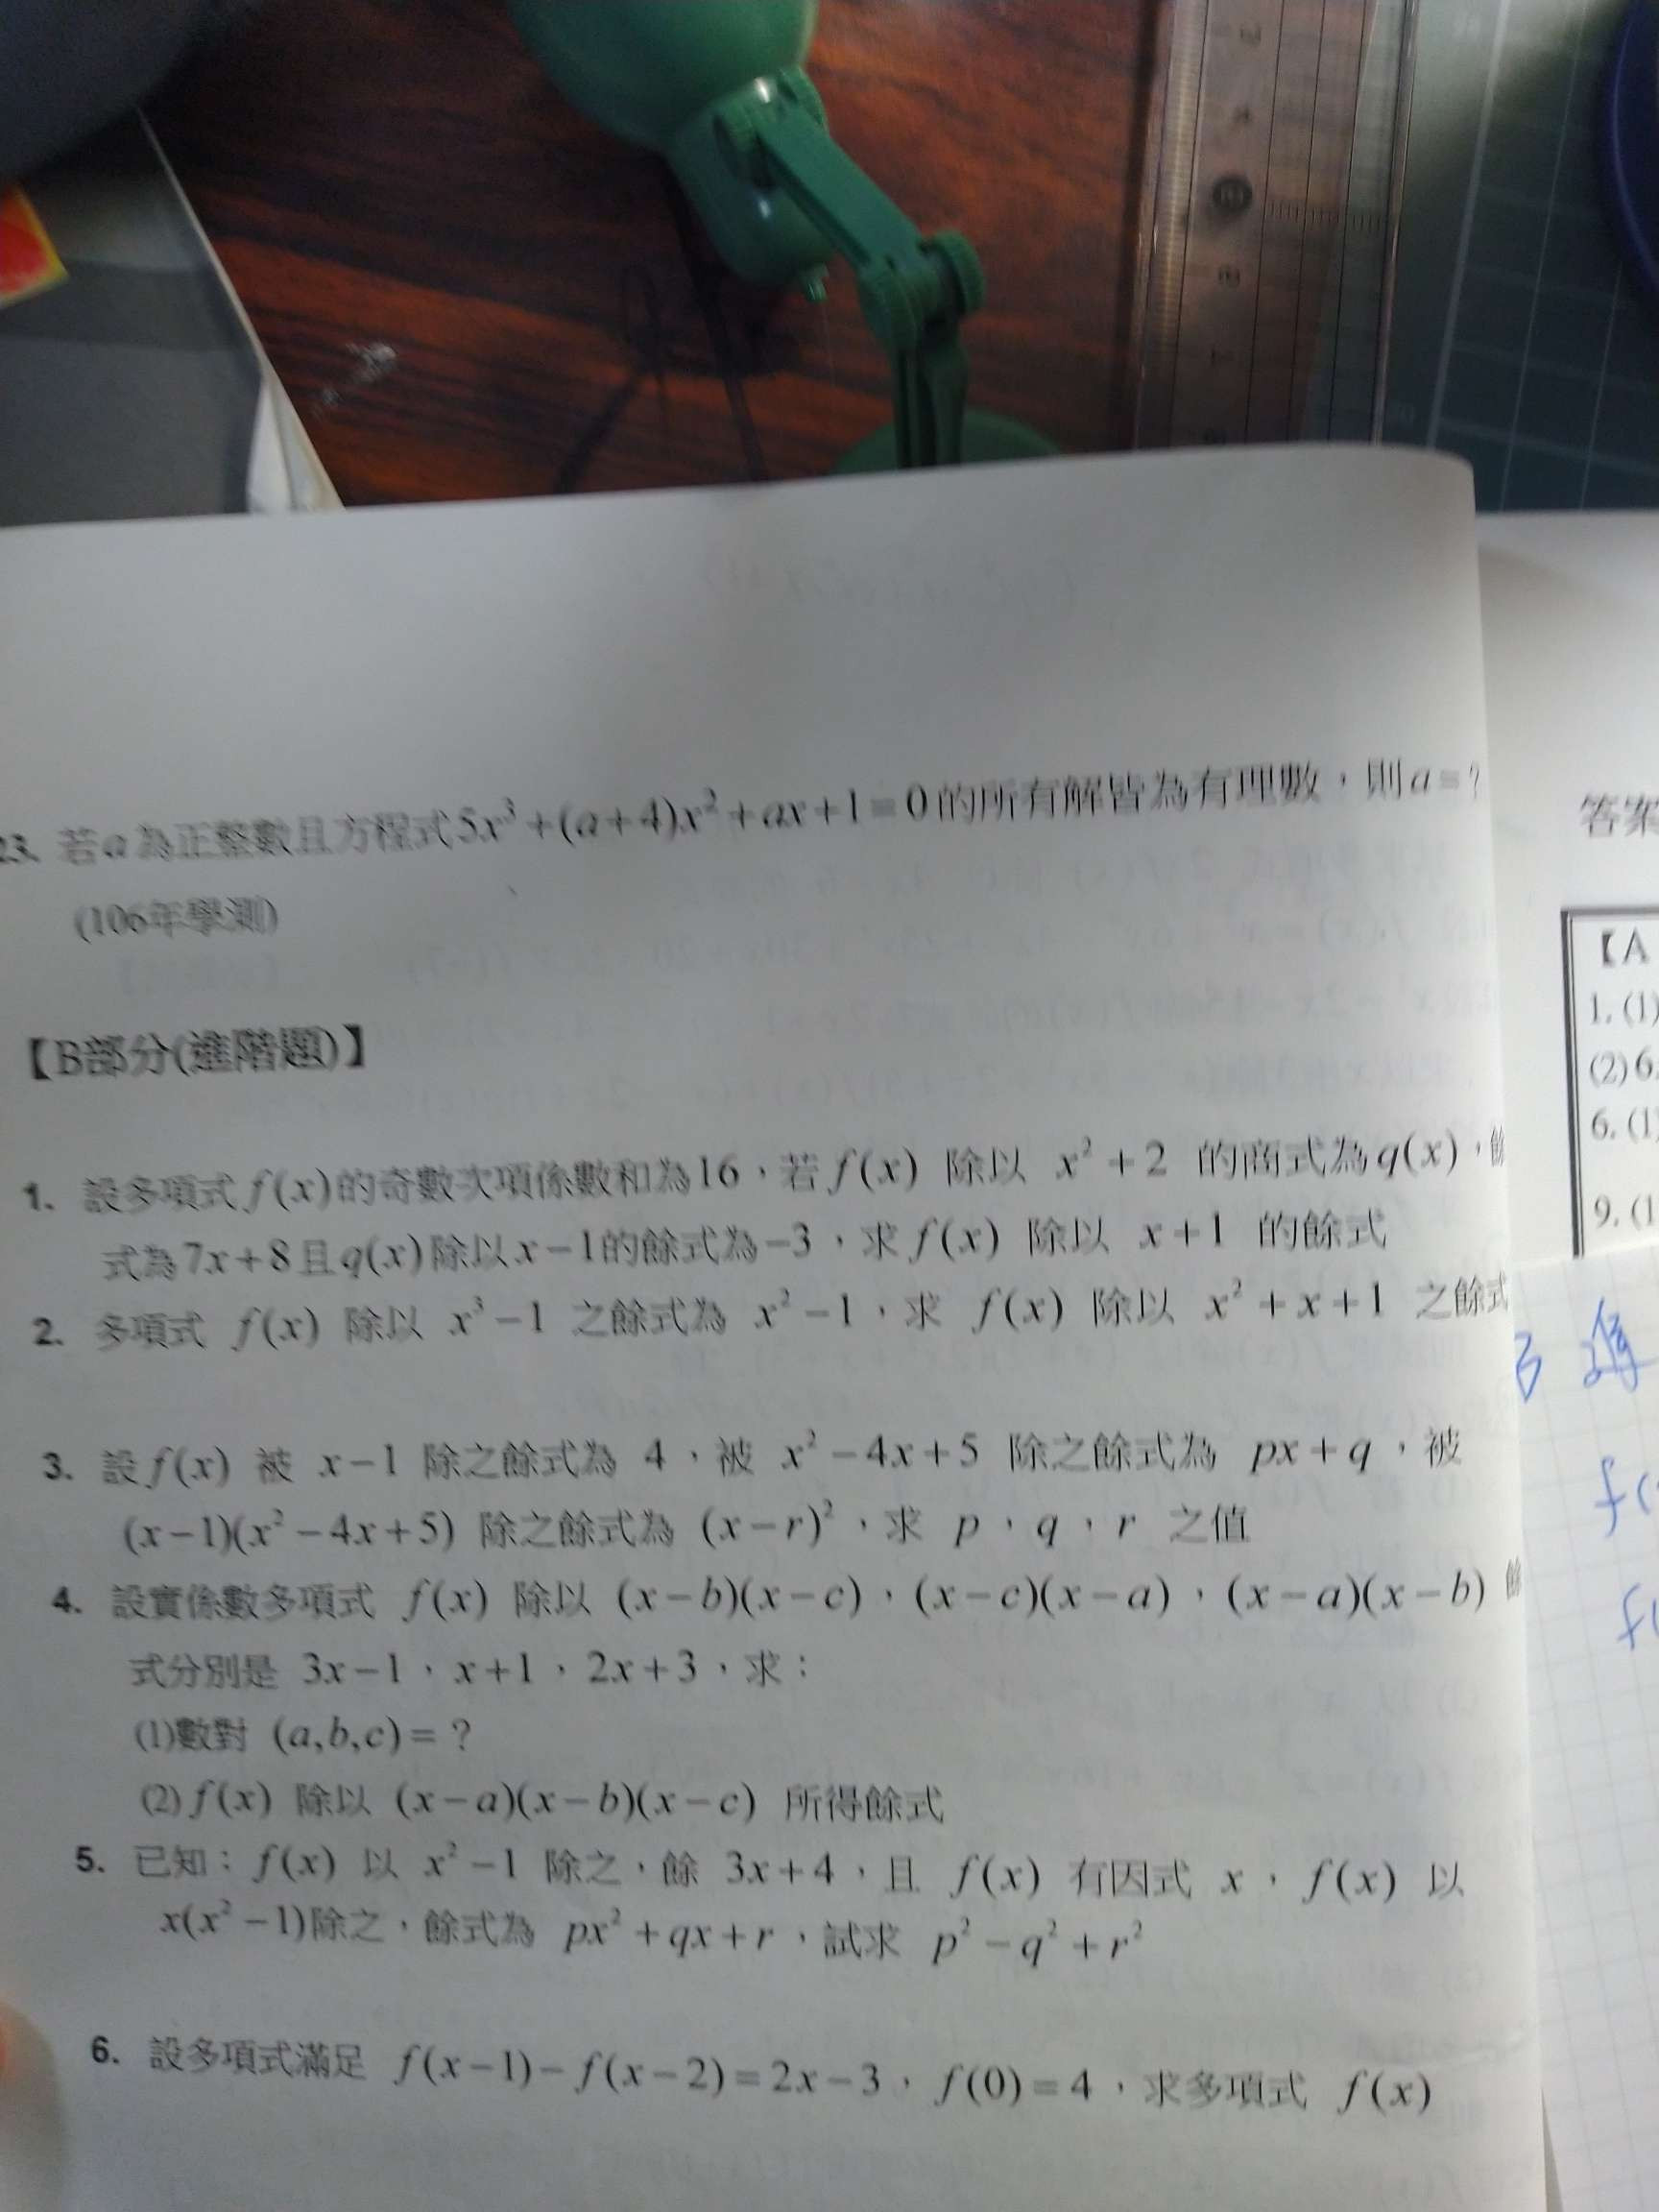 23. 若a為正整數且方程式5x³+(a+4)x²+ax+1=0的所有解皆為有理數，則a=?
(106年學測)
【B部分(進階題)】
1. 設多項式f(x)的奇數次項係數和為16，若f(x) 除以 x²+2 的商式為q(x)，餘
式為7x+8且q(x)除以x-1的餘式為-3，求f(x) 除以 x+1 的餘式
2. 多項式 f(x) 除以 x³-1 之餘式為 x²-1，求 f(x) 除以 x²+x+1 之餘式
3. 設f(x) 被 x-1 除之餘式為 4，被 x²-4x+5 除之餘式為 px+q，被
(x-1)(x²-4x+5) 除之餘式為 (x-r)²，求 p，q，r 之值
4. 設實係數多項式 f(x) 除以 (x-b)(x-c)，(x-c)(x-a)，(x-a)(x-b) 餘
式分別是 3x-1，x+1，2x+3，求：
(1)數對 (a,b,c)=？
(2)f(x) 除以 (x-a)(x-b)(x-c) 所得餘式
5. 已知：f(x) 以 x²-1 除之，餘 3x+4，且 f(x) 有因式 x，f(x) 以
x(x²-1)除之，餘式為 px²+qx+r，試求 p²-q²+r²
6. 設多項式滿足 f(x-1)-f(x-2)=2x-3，f(0)=4，求多項式 f(x)
答案
【A
1. (1)
(2)6
6. (1)
9. (1
B 進
f(
f(